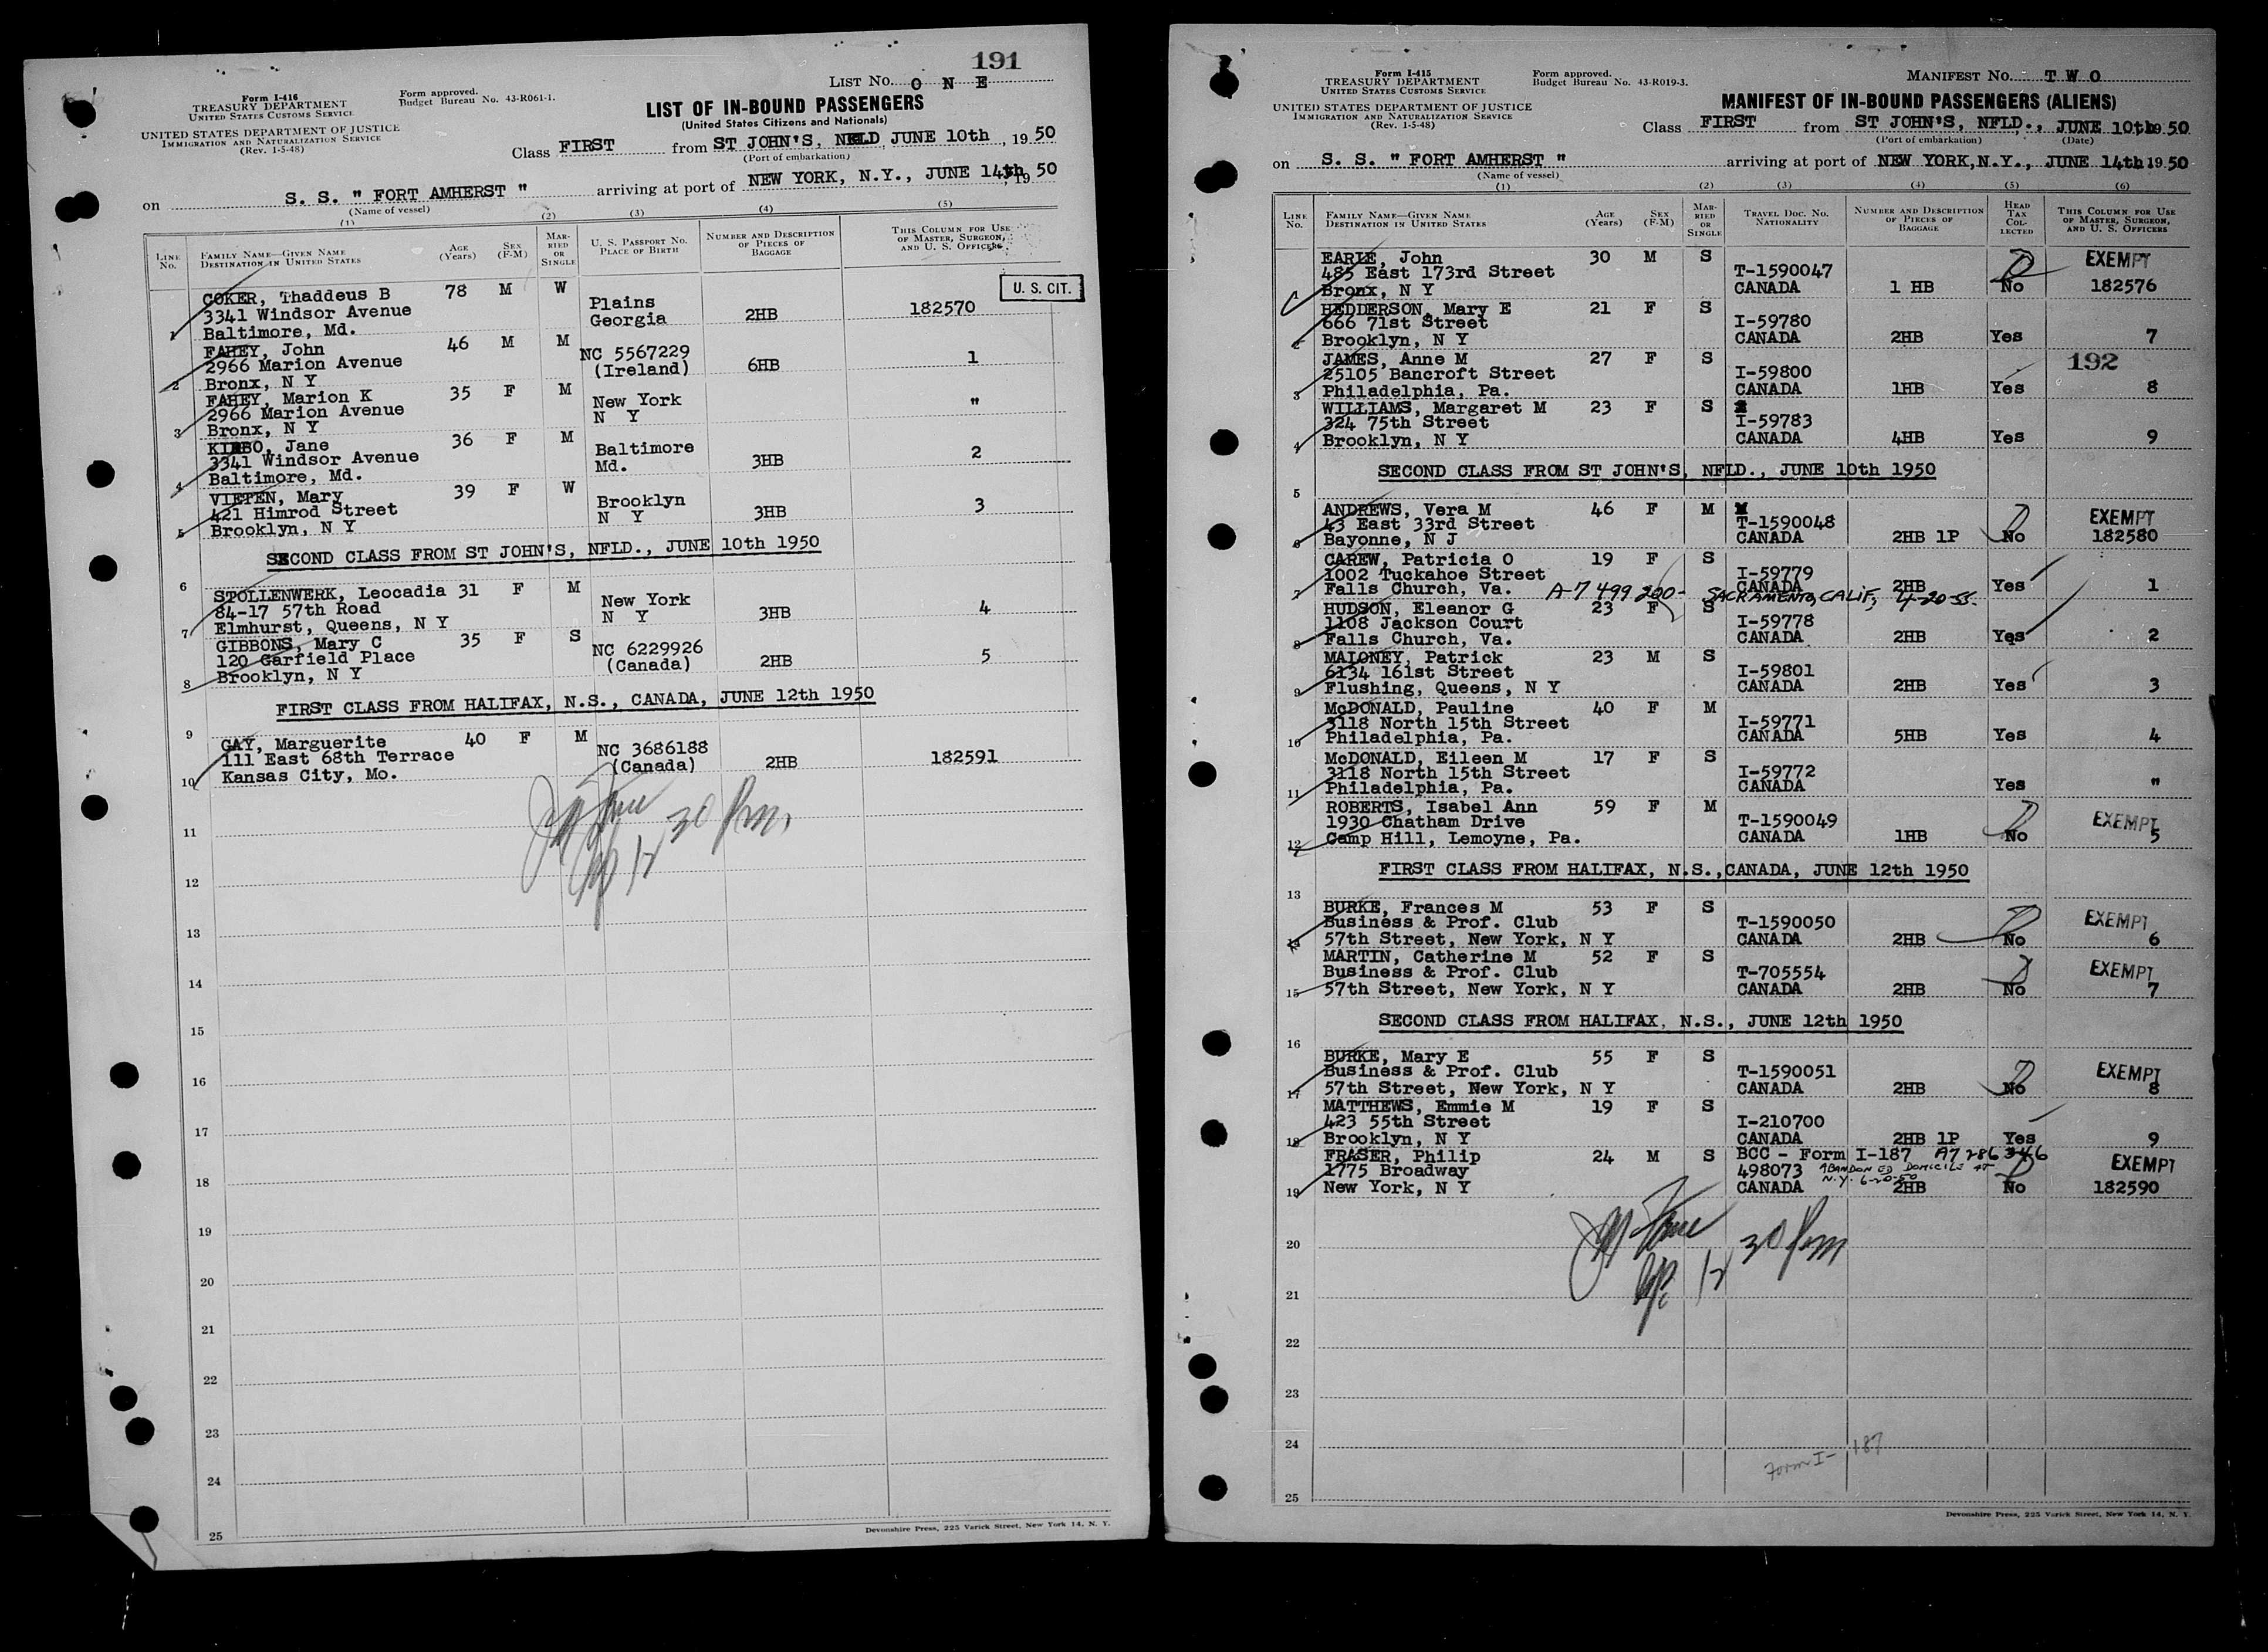 191
LIST NO. O N E
Form I-416
TREASURY DEPARTMENT
UNITED STATES CUSTOMS SERVICE
Form approved.
Budget Bureau No. 43-R061-1.
UNITED STATES DEPARTMENT OF JUSTICE
IMMIGRATION AND NATURALIZATION SERVICE
(Rev. 1-5-48)
LIST OF IN-BOUND PASSENGERS
(United States Citizens and Nationals)
Class FIRST from ST JOHN'S, NFLD JUNE 10th, 19 50
(Port of embarkation)
on S. S. " FORT AMHERST " arriving at port of NEW YORK, N.Y., JUNE 14th, 19 50
(Name of vessel)
(1) (2) (3) (4) (5)
LINE No. FAMILY NAME—GIVEN NAME DESTINATION IN UNITED STATES AGE (Years) SEX (F-M) MARRIED OR SINGLE U. S. PASSPORT NO. PLACE OF BIRTH NUMBER AND DESCRIPTION OF PIECES OF BAGGAGE THIS COLUMN FOR USE OF MASTER, SURGEON, AND U. S. OFFICERS
U. S. CIT.
COKER, Thaddeus B 78 M W
3341 Windsor Avenue Plains
1 Baltimore, Md. Georgia 2HB 182570
FAHEY, John 46 M M
2966 Marion Avenue NC 5567229
2 Bronx, N Y (Ireland) 6HB 1
FAHEY, Marion K 35 F M
2966 Marion Avenue New York
3 Bronx, N Y N Y "
KIMBO, Jane 36 F M
3341 Windsor Avenue Baltimore
4 Baltimore, Md. Md. 3HB 2
VIETEN, Mary 39 F W
421 Himrod Street Brooklyn
5 Brooklyn, N Y N Y 3HB 3
SECOND CLASS FROM ST JOHN'S, NFLD., JUNE 10th 1950
6
STOLLENWERK, Leocadia 31 F M
84-17 57th Road New York
7 Elmhurst, Queens, N Y N Y 3HB 4
GIBBONS, Mary C 35 F S
120 Garfield Place NC 6229926
8 Brooklyn, N Y (Canada) 2HB 5
FIRST CLASS FROM HALIFAX, N.S., CANADA, JUNE 12th 1950
9
GAY, Marguerite 40 F M
111 East 68th Terrace NC 3686188
10 Kansas City, Mo. (Canada) 2HB 182591
30
11
12
13
14
15
16
17
18
19
20
21
22
23
24
25
Devonshire Press, 225 Varick Street, New York 14, N. Y.
Form I-415
TREASURY DEPARTMENT
UNITED STATES CUSTOMS SERVICE
Form approved.
Budget Bureau No. 43-R019-3.
MANIFEST NO. T W O
UNITED STATES DEPARTMENT OF JUSTICE
IMMIGRATION AND NATURALIZATION SERVICE
(Rev. 1-5-48)
MANIFEST OF IN-BOUND PASSENGERS (ALIENS)
Class FIRST from ST JOHN'S, NFLD., JUNE 10th 19 50
(Port of embarkation) (Date)
on S. S. " FORT AMHERST " arriving at port of NEW YORK, N.Y., JUNE 14th 19 50
(Name of vessel)
(1) (2) (3) (4) (5) (6)
LINE No. FAMILY NAME—GIVEN NAME DESTINATION IN UNITED STATES AGE (Years) SEX (F-M) MARRIED OR SINGLE TRAVEL DOC. NO. NATIONALITY NUMBER AND DESCRIPTION OF PIECES OF BAGGAGE HEAD TAX COLLECTED THIS COLUMN FOR USE OF MASTER, SURGEON, AND U. S. OFFICERS
EARLE, John 30 M S EXEMPT
485 East 173rd Street T-1590047
1 Bronx, N Y CANADA 1 HB No 182576
HEDDERSON, Mary E 21 F S
666 71st Street I-59780
2 Brooklyn, N Y CANADA 2HB Yes 7
JAMES, Anne M 27 F S 192
25105 Bancroft Street I-59800
3 Philadelphia, Pa. CANADA 1HB Yes 8
WILLIAMS, Margaret M 23 F S
324 75th Street I-59783
4 Brooklyn, N Y CANADA 4HB Yes 9
SECOND CLASS FROM ST JOHN'S, NFLD., JUNE 10th 1950
5
ANDREWS, Vera M 46 F M EXEMPT
43 East 33rd Street T-1590048
6 Bayonne, N J CANADA 2HB 1P No 182580
CAREW, Patricia O 19 F S
1002 Tuckahoe Street I-59779
7 Falls Church, Va. CANADA 2HB Yes 1
A-7 499 200- SACRAMENTO, CALIF, 4-20-55.
HUDSON, Eleanor G 23 F S
1108 Jackson Court I-59778
8 Falls Church, Va. CANADA 2HB Yes 2
MALONEY, Patrick 23 M S
6134 161st Street I-59801
9 Flushing, Queens, N Y CANADA 2HB Yes 3
McDONALD, Pauline 40 F M
3118 North 15th Street I-59771
10 Philadelphia, Pa. CANADA 5HB Yes 4
McDONALD, Eileen M 17 F S
3118 North 15th Street I-59772
11 Philadelphia, Pa. CANADA Yes "
ROBERTS, Isabel Ann 59 F M
1930 Chatham Drive T-1590049 EXEMPT
12 Camp Hill, Lemoyne, Pa. CANADA 1HB No 5
FIRST CLASS FROM HALIFAX, N.S., CANADA, JUNE 12th 1950
13
BURKE, Frances M 53 F S
Business & Prof. Club T-1590050 EXEMPT
14 57th Street, New York, N Y CANADA 2HB No 6
MARTIN, Catherine M 52 F S
Business & Prof. Club T-705554 EXEMPT
15 57th Street, New York, N Y CANADA 2HB No 7
SECOND CLASS FROM HALIFAX, N.S., JUNE 12th 1950
16
BURKE, Mary E 55 F S
Business & Prof. Club T-1590051 EXEMPT
17 57th Street, New York, N Y CANADA 2HB No 8
MATTHEWS, Emmie M 19 F S
423 55th Street I-210700
18 Brooklyn, N Y CANADA 2HB 1P Yes 9
FRASER, Philip 24 M S BCC - Form I-187 A7 286 346
1775 Broadway 498073 ABANDONED DOMICILE AT EXEMPT
N.Y. 6-20-50
19 New York, N Y CANADA 2HB No 182590
30
20
21
22
23
24
Form I- 187
25
Devonshire Press, 225 Varick Street, New York 14, N. Y.